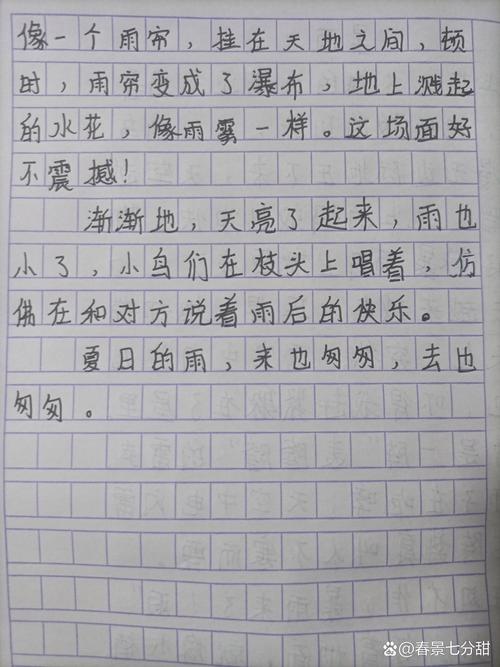 像一个雨帘，挂在天地之间，顿
时，雨帘变成了瀑布，地上溅起
的水花，像雨雾一样。这场面好
不震撼！
渐渐地，天亮了起来，雨也
小了，小鸟们在枝头上唱着，仿
佛在和对方说着雨后的快乐。
夏日的雨，来也匆匆，去也
匆匆。
@春景七分甜